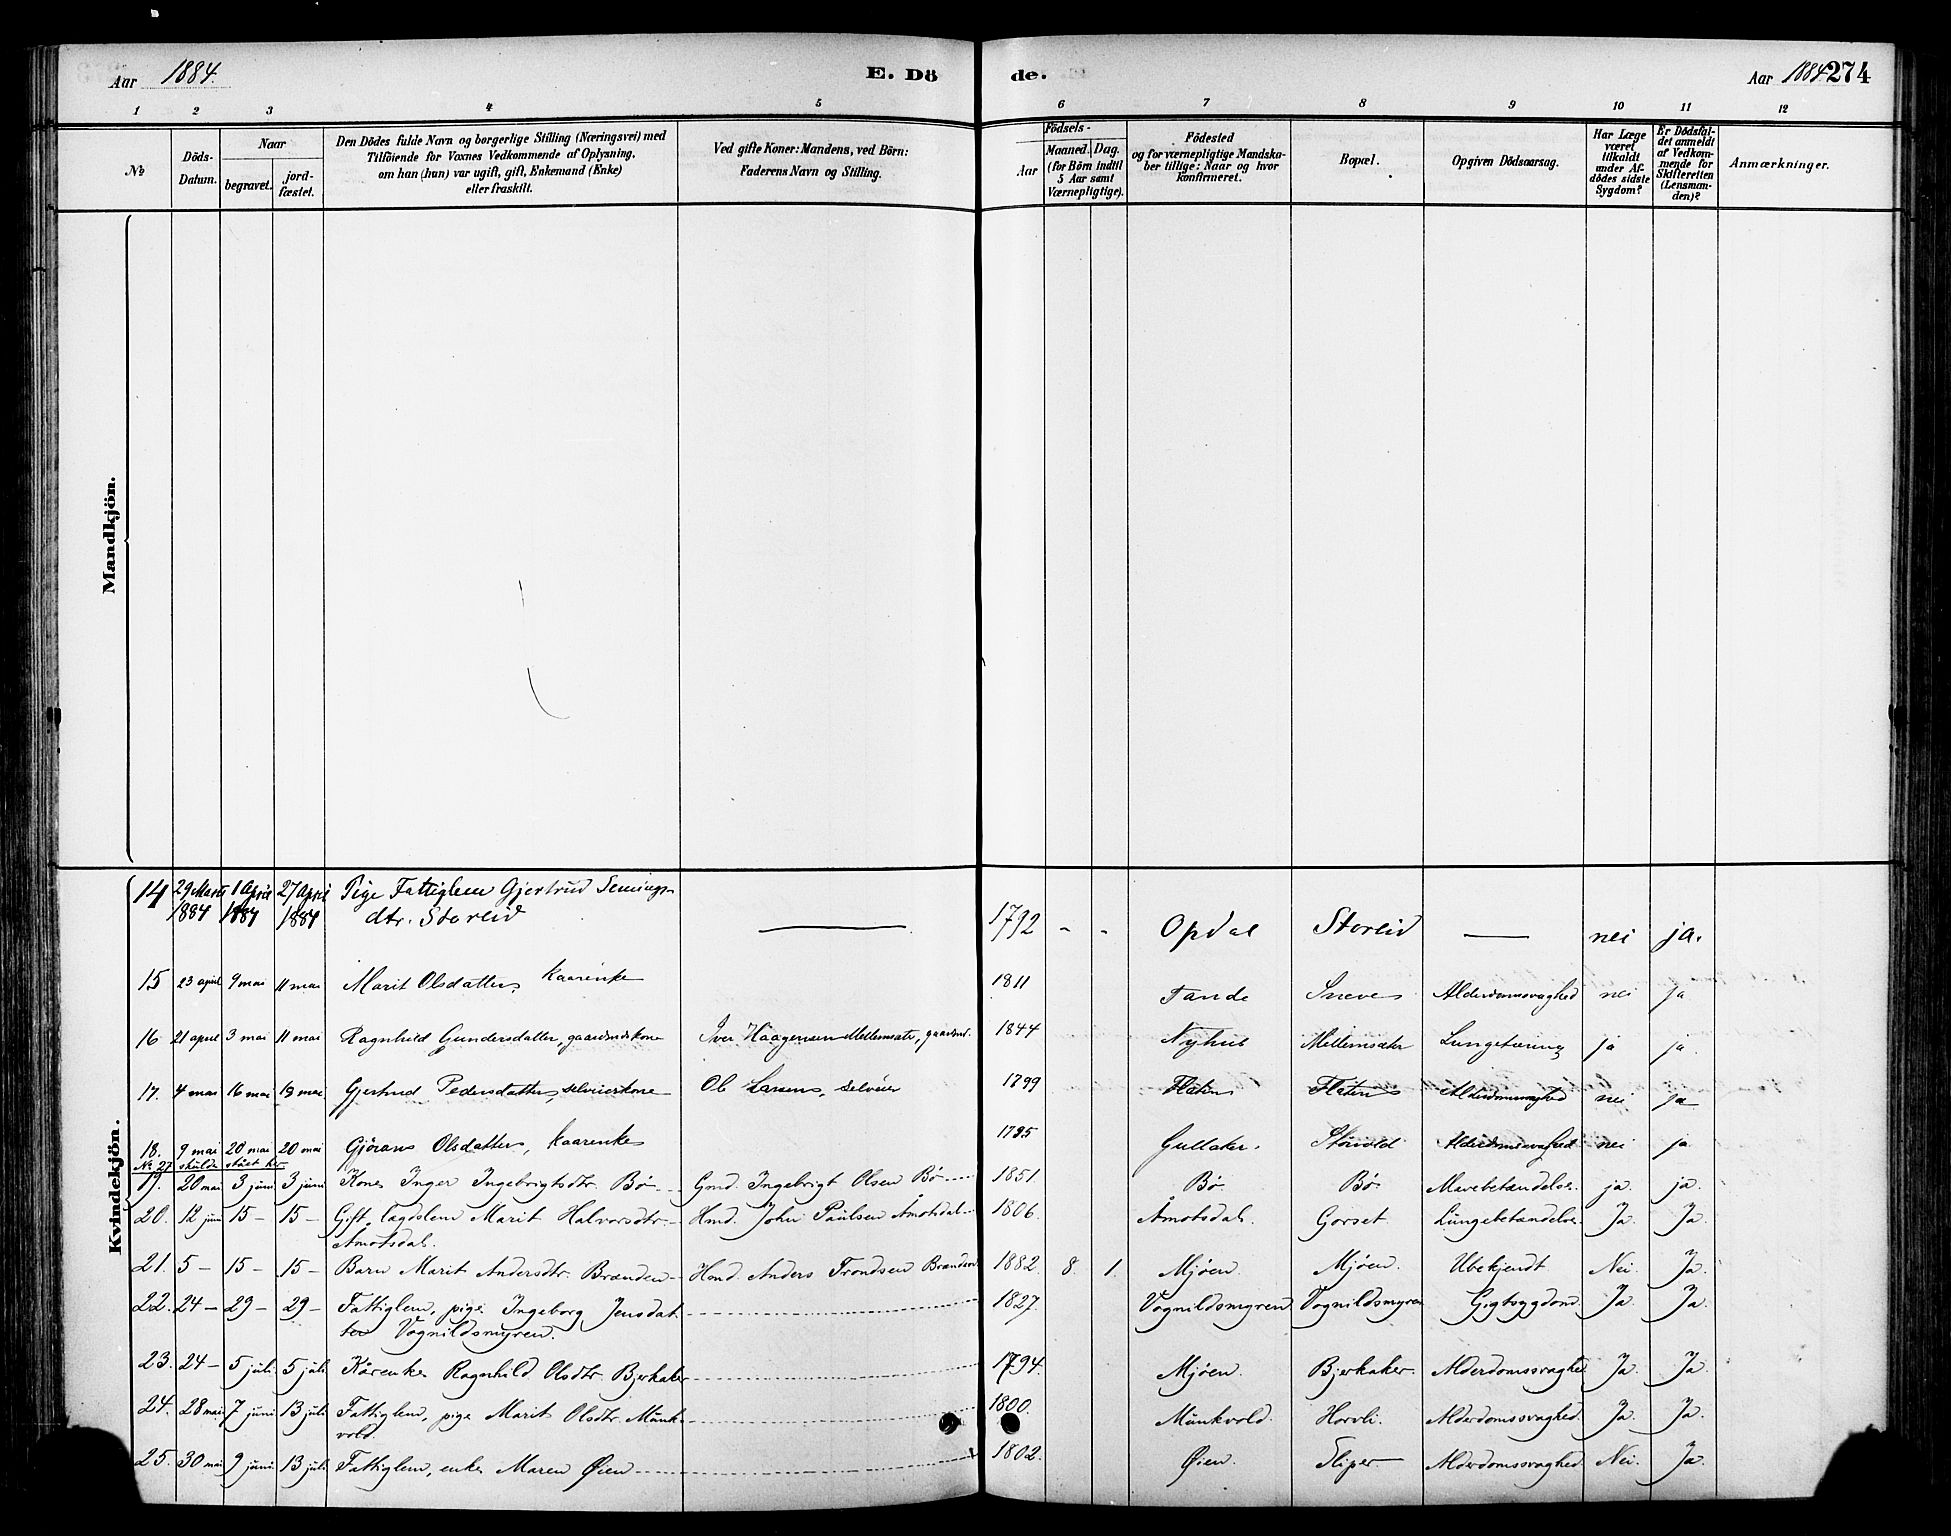 Aar 1884. E. Dö de. Aar 1884 274
1 2 3 4 5 6 7 8 9 10 11 12
No
Döds-Datum.
Naar
begravet.
jord-fæstet.
Den Dödes fulde Navn og borgerlige Stilling (Næringsvei) med
Tilföiende for Voxnes Vedkommende af Oplysning,
om han (hun) var ugift, gift, Enkemand (Enke)
eller fraskilt.
Ved gifte Koner: Mandens, ved Börn:
Faderens Navn og Stilling.
Födsels-
Aar
Maaned. Dag.
(for Börn indtil
5 Aar samt
Værnepligtige).
Födested
og for værnepligtige Mandska-
ber tillige: Naar og hvor
konfirmeret.
Bopæl.
Opgiven Dödsaarsag.
Har Læge
været
tilkaldt
under Af-
dödes sidste
Sygdom?
Er Dödsfal-
det anmeldt
af Vedkom-
mende for
Skifteretten
(Lensman-
den)?
Anmærkninger.
Mandkjön.
Kvindekjön.
14 29 Marts 1 April 27 April Pige Fattiglem Gjertrud Semings-
1884 1884 1884 dtr. Storlid — 1792 - - Opdal Storlid — nei ja.
15 23 april 9 mai 11 mai Marit Olsdatter, kaarenke 1811 Tande Sneve Alderdomssvaghed nei ja
16 21 april 3 mai 11 mai Ragnhild Gundersdatter, gaardmdskone Iver Haagensen Mellemsæte, gaardmd. 1844 Nyhus Mellemsæter Lungetæring ja ja.
17. 4 mai 16 mai 19 mai Gjertrud Pedersdatter, selveierkone Ole Larsen, selveier 1799 Flaten Flaten Alderdomssvaghed nei ja
18. 9 mai 20 mai 20 mai Gjøran Olsdatter, kaarenke 1795 Gullaker. Stølvold Alderdomssvaghed nei ja
No 27 skulde staaet her
19. 20 mai 3 juni 3 juni Kone Inger Ingebrigtsdtr. Bø Gmd. Ingebrigt Olsen Bø 1851. Bø. Bø. Mavebetændelse. ja. ja.
20. 12 juni 15 - 15 - Gift, lægdslem Marit Halvorsdtr. Hmd. John Paulsen Åmotsdal 1806. Åmotsdal. Gorset. Lungebetændelse. Ja. Ja.
Åmotsdal.
21. 5 - 15 - 15 - Barn Marit Andersdtr. Brænden Hmd. Anders Trondsen Brænden 1882. 8. 1. Mjøen. Mjøen. Ubekjendt Nei. Ja.
22. 24 - 29 - 29 - Fattiglem, pige Ingeborg Jensdat- 1827. Vognildsmyren Vognildsmyren Gigtsygdom. Ja. Ja.
ter Vognildsmyren.
23. 24 - 5 juli 5 juli Kårenke Ragnhild Olsdtr. Bjerkaker 1794. Mjøen. Bjerkaker. Alderdomssvaghed Ja. Ja.
24. 28 mai 7 juni 13 juli Fattiglem, pige Marit Olsdtr. Munk- 1800. Munkvold. Horvli. Alderdomssvaghed. Ja. Ja.
vold.
25. 30 mai 9 juni 13 juli Fattiglem, enke Maren Øien 1802. Øien. Sliper Alderdomssvaghed. Nei. Ja.